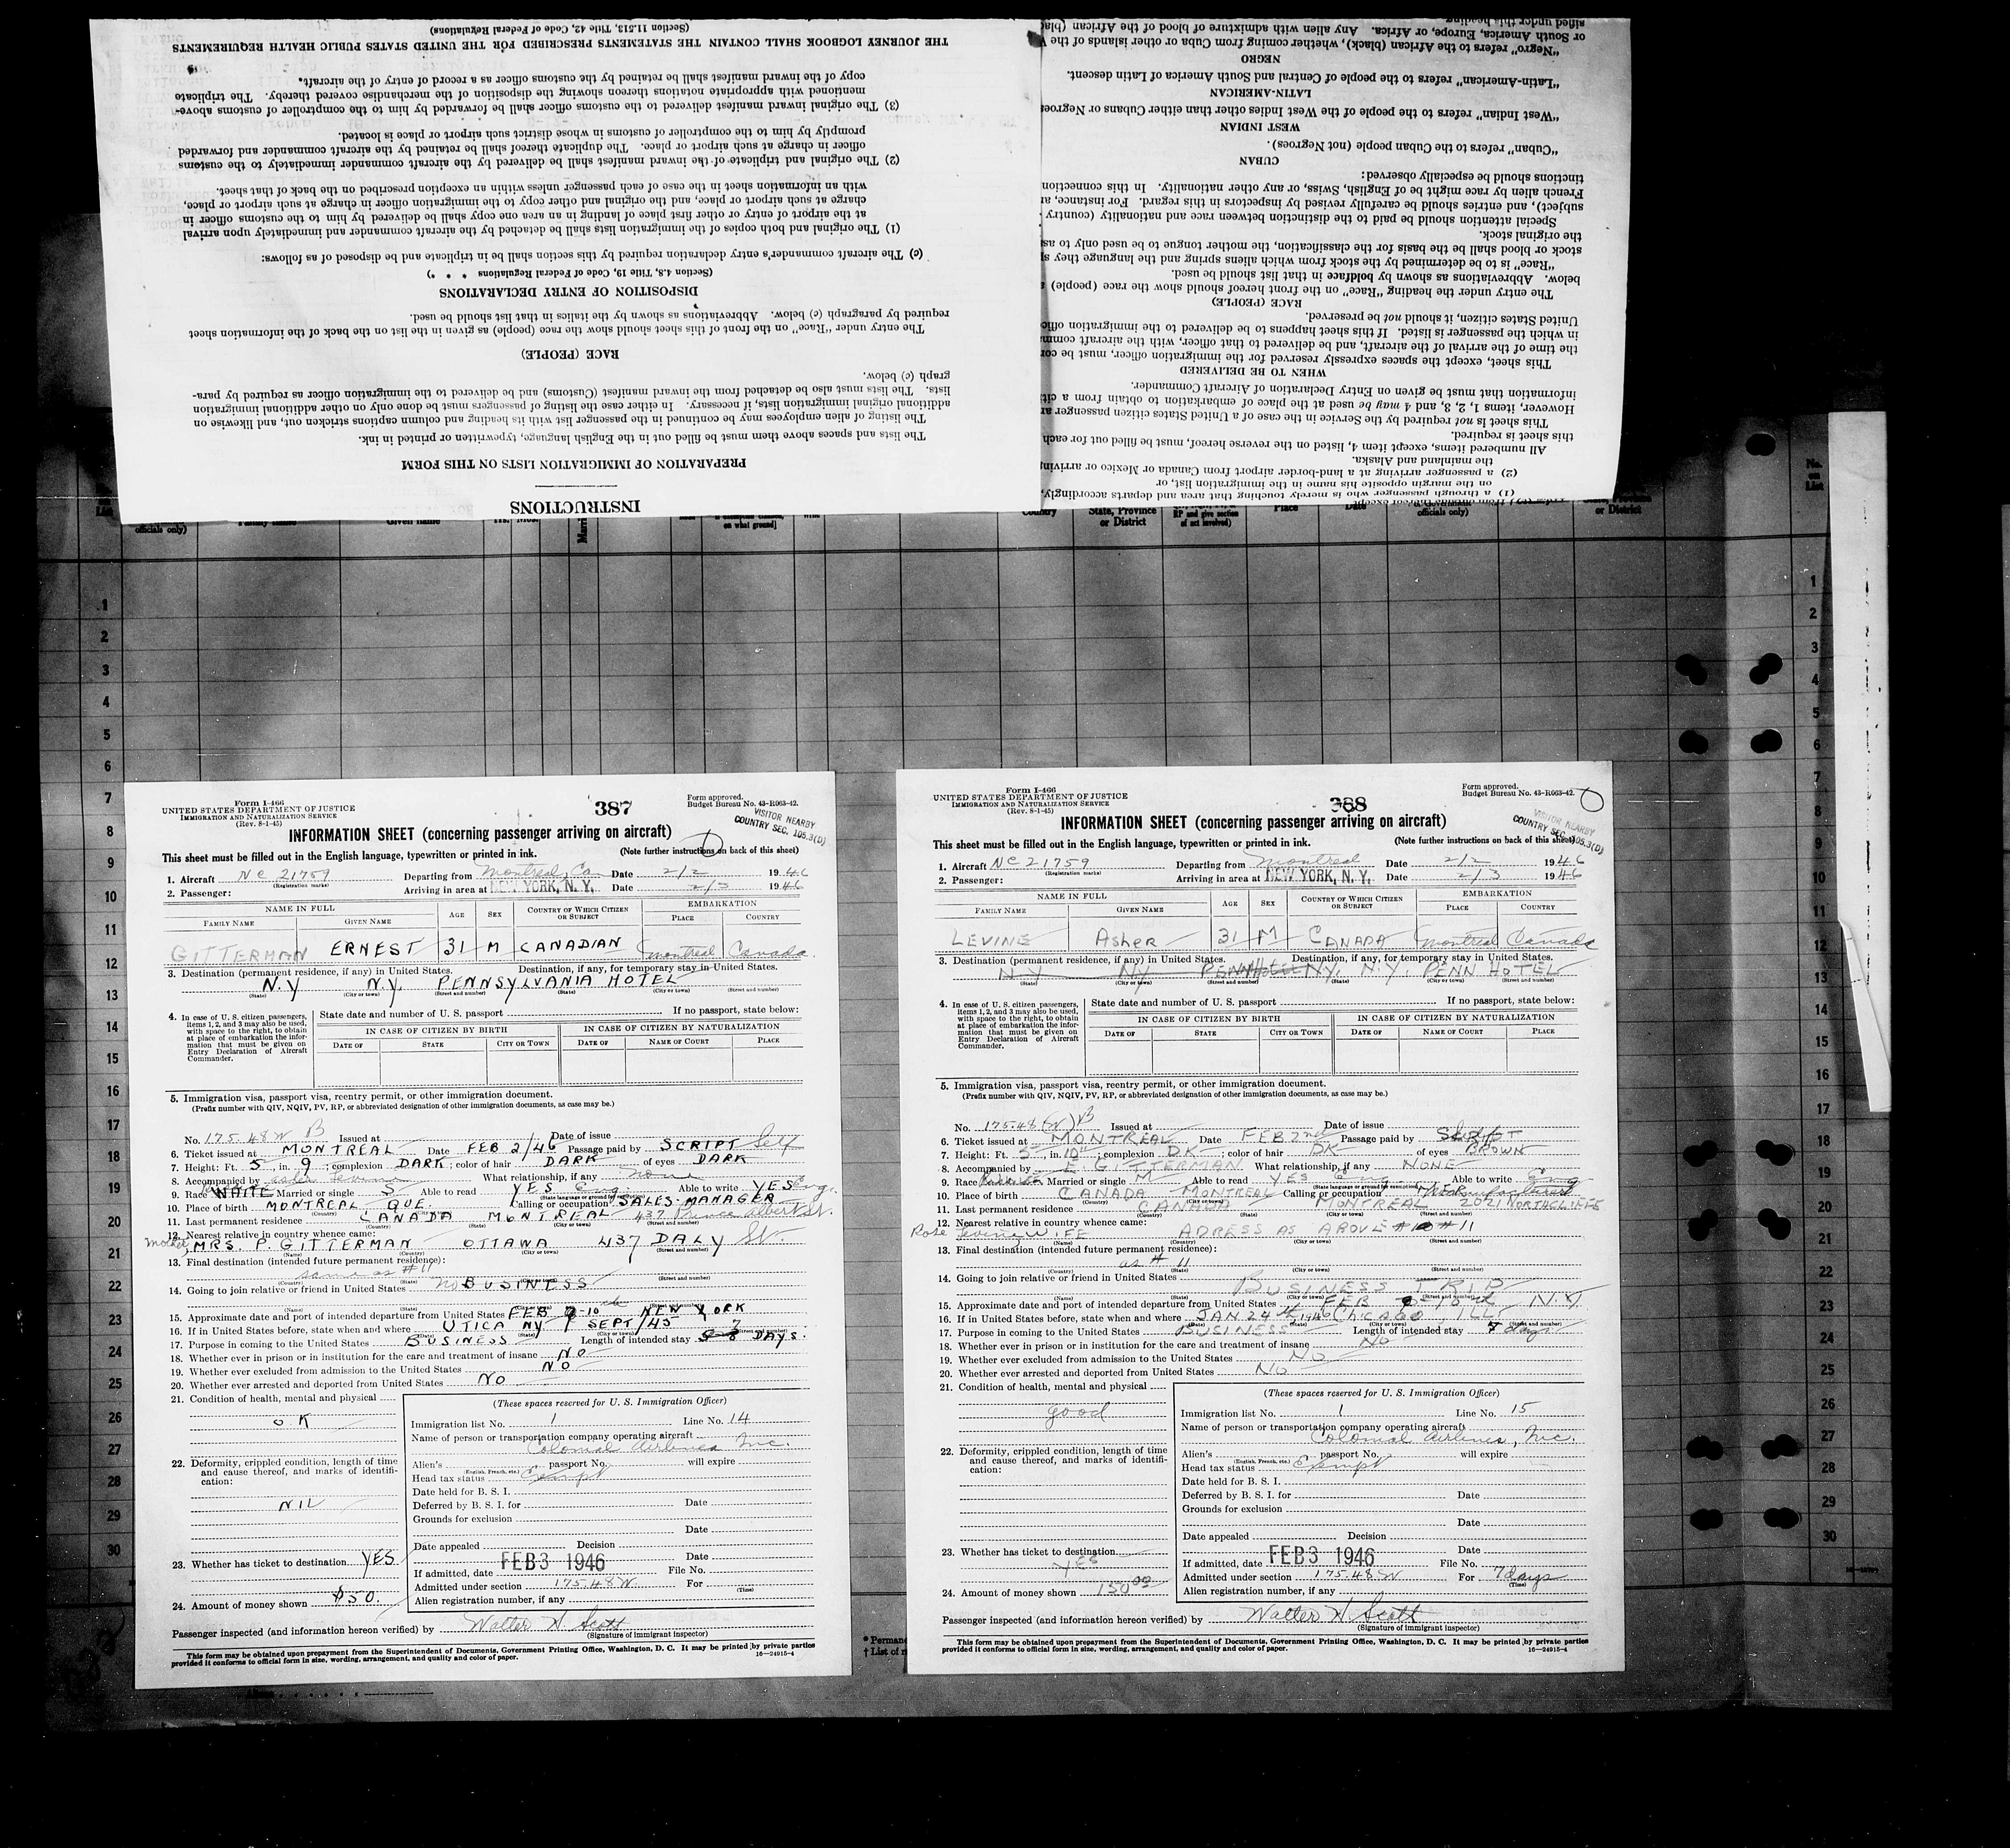 INSTRUCTIONS
PREPARATION OF IMMIGRATION LISTS ON THIS FORM
The lists and spaces above them must be filled out in the English language, typewritten or printed in ink.
The listing of alien employees may be continued in the passenger list with its heading and column captions stricken out, and likewise on
additional original immigration lists, if necessary. In either case the listing of passengers must be done only on other additional immigration
lists. The lists must also be detached from the inward manifest (Customs) and be delivered to the immigration officer as required by para-
graph (c) below.
RACE (PEOPLE)
The entry under "Race" on the front of this sheet should show the race (people) as given in the list on the back of the information sheet
required by paragraph (c) below. Abbreviations as shown by the italics in that list should be used.
DISPOSITION OF ENTRY DECLARATIONS
(Section 4.8, Title 19, Code of Federal Regulations * * *)
(c) The aircraft commander's entry declaration required by this section shall be in triplicate and be disposed of as follows:
(1) The original and both copies of the immigration lists shall be detached by the aircraft commander and immediately upon arrival
at the airport of entry or other first place of landing in an area one copy shall be delivered by him to the customs officer in
charge at such airport or place, and the original and other copy to the immigration officer in charge at such airport or place,
with an information sheet in the case of each passenger unless within an exception prescribed on the back of that sheet.
(2) The original and triplicate of the inward manifest shall be delivered by the aircraft commander immediately to the customs
officer in charge at such airport or place. The duplicate thereof shall be retained by the aircraft commander and forwarded
promptly by him to the comptroller of customs in whose district such airport or place is located.
(3) The original inward manifest delivered to the customs officer shall be forwarded by him to the comptroller of customs above-
mentioned with appropriate notations thereon showing the disposition of the merchandise covered thereby. The triplicate
copy of the inward manifest shall be retained by the customs officer as a record of entry of the aircraft.
THE JOURNEY LOGBOOK SHALL CONTAIN THE STATEMENTS PRESCRIBED FOR THE UNITED STATES PUBLIC HEALTH REQUIREMENTS
(Section 11.513, Title 42, Code of Federal Regulations)
(1) a through passenger who is merely touching that area and departs accordingly,
on the margin opposite his name in the immigration list, or
(2) a passenger arriving at a land-border airport from Canada or Mexico or arriving
the mainland and Alaska.
All numbered items, except item 4, listed on the reverse hereof, must be filled out for each
this sheet is required.
This sheet is not required by the Service in the case of a United States citizen passenger
However, items 1, 2, 3, and 4 may be used at the place of embarkation to obtain from a
information that must be given on Entry Declaration of Aircraft Commander.
WHEN TO BE DELIVERED
This sheet, except the spaces expressly reserved for the immigration officer, must be
the time of the arrival of the aircraft, and be delivered to that officer, with the aircraft
in which the passenger is listed. If this sheet happens to be delivered to the immigration
United States citizen, it should not be preserved.
RACE (PEOPLE)
The entry under the heading "Race" on the front hereof should show the race (people)
below. Abbreviations as shown by boldface in that list should be used.
"Race" is to be determined by the stock from which aliens spring and the language they
stock or blood shall be the basis for the classification, the mother tongue to be used only to
the original stock.
Special attention should be paid to the distinction between race and nationality (country
subject), and entries should be carefully revised by inspectors in this regard. For instance,
French alien by race might be of English, Swiss, or any other nationality. In this connection
tinctions should be especially observed:
CUBAN
"Cuban" refers to the Cuban people (not Negroes).
WEST INDIAN
"West Indian" refers to the people of the West Indies other than either Cubans or Negroes
LATIN-AMERICAN
"Latin-American" refers to the people of Central and South America of Latin descent.
NEGRO
"Negro" refers to the African (black), whether coming from Cuba or other islands of the
or South America, Europe, or Africa. Any alien with admixture of blood of the African
sified under this heading
Form I-466
UNITED STATES DEPARTMENT OF JUSTICE
IMMIGRATION AND NATURALIZATION SERVICE
(Rev. 8-1-45)
387
Form approved.
Budget Bureau No. 43-R063-42.
VISITOR NEARBY
COUNTRY SEC. 105.3(D)
INFORMATION SHEET (concerning passenger arriving on aircraft)
This sheet must be filled out in the English language, typewritten or printed in ink. (Note further instructions on back of this sheet)
1. Aircraft NC 21759 Departing from Montreal, Can Date 2/2 1946
(Registration marks)
2. Passenger: Arriving in area at NEW YORK, N. Y. Date 2/3 1946
NAME IN FULL AGE SEX COUNTRY OF WHICH CITIZEN OR SUBJECT EMBARKATION
FAMILY NAME GIVEN NAME PLACE COUNTRY
GITTERMAN ERNEST 31 M CANADIAN Montreal Canada
3. Destination (permanent residence, if any) in United States. Destination, if any, for temporary stay in United States.
N.Y N.Y. PENNSYLVANIA HOTEL
(State) (City or town) (Street and number) (State) (City or town) (Street and number)
4. In case of U. S. citizen passengers, items 1, 2, and 3 may also be used, with space to the right, to obtain at place of embarkation the information that must be given on Entry Declaration of Aircraft Commander.
State date and number of U. S. passport If no passport, state below:
IN CASE OF CITIZEN BY BIRTH IN CASE OF CITIZEN BY NATURALIZATION
DATE OF STATE CITY OR TOWN DATE OF NAME OF COURT PLACE
5. Immigration visa, passport visa, reentry permit, or other immigration document.
(Prefix number with QIV, NQIV, PV, RP, or abbreviated designation of other immigration documents, as case may be.)
No. 175.48 W B Issued at Date of issue
6. Ticket issued at MONTREAL Date FEB 2/46 Passage paid by SCRIPT Self
7. Height: Ft. 5, in. 9; complexion DARK; color of hair DARK of eyes DARK
8. Accompanied by Asher Levine What relationship, if any None
9. Race WHITE Married or single S Able to read YES Eng. Able to write YES Eng.
10. Place of birth MONTREAL QUE. Calling or occupation SALES-MANAGER
11. Last permanent residence CANADA MONTREAL 437 Prince Albert St.
12. Nearest relative in country whence came:
Mother MRS. P. GITTERMAN OTTAWA 437 DALY St
(Name) (Country) (City or town) (Street and number)
13. Final destination (intended future permanent residence):
same as #11
14. Going to join relative or friend in United States no BUSINESS
15. Approximate date and port of intended departure from United States FEB 10 NEW YORK
16. If in United States before, state when and where UTICA NY SEPT/45
17. Purpose in coming to the United States BUSINESS Length of intended stay 7 DAYS.
18. Whether ever in prison or in institution for the care and treatment of insane NO
19. Whether ever excluded from admission to the United States NO
20. Whether ever arrested and deported from United States NO
21. Condition of health, mental and physical
OK
22. Deformity, crippled condition, length of time and cause thereof, and marks of identification:
NIL
23. Whether has ticket to destination YES
24. Amount of money shown $50.
(These spaces reserved for U. S. Immigration Officer)
Immigration list No. 1 Line No. 14
Name of person or transportation company operating aircraft
Colonial Airlines Inc.
Alien's passport No. will expire
(English, French, etc.)
Head tax status Exempt
Date held for B. S. I.
Deferred by B. S. I. for Date
Grounds for exclusion
Date
Date appealed Decision
Date
If admitted, date FEB 3 1946 File No.
Admitted under section 175.48 W. For
(Time)
Alien registration number, if any
Passenger inspected (and information hereon verified) by Walter H. Scott
(Signature of immigrant inspector)
This form may be obtained upon prepayment from the Superintendent of Documents, Government Printing Office, Washington, D. C. It may be printed by private parties
provided it conforms to official form in size, wording, arrangement, and quality and color of paper. 16—24915-4
Form I-466
UNITED STATES DEPARTMENT OF JUSTICE
IMMIGRATION AND NATURALIZATION SERVICE
(Rev. 8-1-45)
388
Form approved.
Budget Bureau No. 43-R063-42.
VISITOR NEARBY
COUNTRY SEC. 105.3(D)
INFORMATION SHEET (concerning passenger arriving on aircraft)
This sheet must be filled out in the English language, typewritten or printed in ink. (Note further instructions on back of this sheet)
1. Aircraft NC 21759 Departing from Montreal Date 2/2 1946
(Registration marks)
2. Passenger: Arriving in area at NEW YORK, N. Y. Date 2/3 1946
NAME IN FULL AGE SEX COUNTRY OF WHICH CITIZEN OR SUBJECT EMBARKATION
FAMILY NAME GIVEN NAME PLACE COUNTRY
LEVINE Asher 31 M CANADA Montreal Canada
3. Destination (permanent residence, if any) in United States. Destination, if any, for temporary stay in United States.
N.Y. N.Y. PENN HOTEL
(State) (City or town) (Street and number) (State) (City or town) (Street and number)
4. In case of U. S. citizen passengers, items 1, 2, and 3 may also be used, with space to the right, to obtain at place of embarkation the information that must be given on Entry Declaration of Aircraft Commander.
State date and number of U. S. passport If no passport, state below:
IN CASE OF CITIZEN BY BIRTH IN CASE OF CITIZEN BY NATURALIZATION
DATE OF STATE CITY OR TOWN DATE OF NAME OF COURT PLACE
5. Immigration visa, passport visa, reentry permit, or other immigration document.
(Prefix number with QIV, NQIV, PV, RP, or abbreviated designation of other immigration documents, as case may be.)
No. 175.48 (W) B Issued at Date of issue
6. Ticket issued at MONTREAL Date FEB 2nd Passage paid by
7. Height: Ft. 5, in. 10; complexion DK; color of hair DK of eyes BROWN
8. Accompanied by E. GITTERMAN What relationship, if any NONE
9. Race Married or single M Able to read YES Eng Able to write Eng
10. Place of birth CANADA MONTREAL Calling or occupation
11. Last permanent residence CANADA MONTREAL 2021 NORTHCLIFFE
12. Nearest relative in country whence came:
Rose Levine WIFE ADRESS AS ABOVE # 11
13. Final destination (intended future permanent residence):
as # 11
14. Going to join relative or friend in United States BUSINESS TRIP
15. Approximate date and port of intended departure from United States FEB 10 N.Y.
16. If in United States before, state when and where JAN 24 1946 Chicago, ILL
17. Purpose in coming to the United States BUSINESS Length of intended stay 7 days
18. Whether ever in prison or in institution for the care and treatment of insane NO
19. Whether ever excluded from admission to the United States NO
20. Whether ever arrested and deported from United States NO
21. Condition of health, mental and physical
good
22. Deformity, crippled condition, length of time and cause thereof, and marks of identification:
23. Whether has ticket to destination
YES
24. Amount of money shown 150.00
(These spaces reserved for U. S. Immigration Officer)
Immigration list No. 1 Line No. 15
Name of person or transportation company operating aircraft
Colonial Airlines, Inc.
Alien's passport No. will expire
(English, French, etc.)
Head tax status Exempt
Date held for B. S. I.
Deferred by B. S. I. for Date
Grounds for exclusion
Date
Date appealed Decision
Date
If admitted, date FEB 3 1946 File No.
Admitted under section 175.48 W For 7 days
(Time)
Alien registration number, if any
Passenger inspected (and information hereon verified) by Walter H. Scott
(Signature of immigrant inspector)
This form may be obtained upon prepayment from the Superintendent of Documents, Government Printing Office, Washington, D. C. It may be printed by private parties
provided it conforms to official form in size, wording, arrangement, and quality and color of paper. 16—24915-4